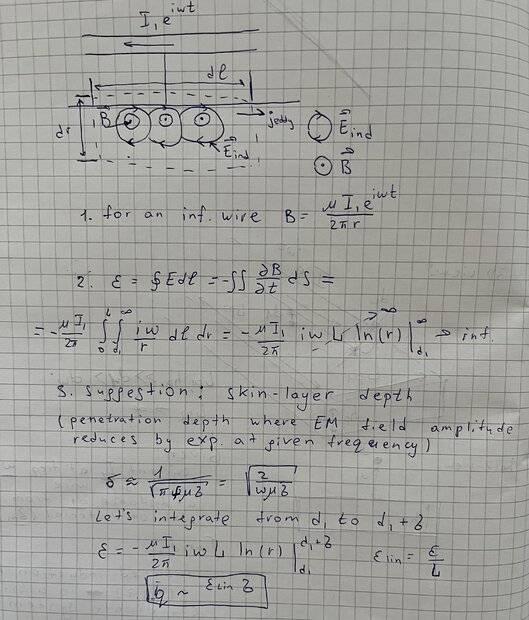 I₁ e^{iwt}
dl
B⃗
jeddy
dr
E⃗ind
E⃗ind
B⃗
1. for an inf. wire B = μ I₁ e^{iwt} / 2πr
2. ε = ∮Edl = -∬ ∂B/∂t dS =
= - μI₁/2π ∫₀^L ∫_{d₁}^∞ iw/r dl dr = - μI₁/2π iw L ln(r) |_{d₁}^∞ → ∞ → inf.
3. Suggestion: skin-layer depth
(penetration depth where EM field amplitude
reduces by exp. at given frequency)
δ ≈ 1/√(πfμδ) = √(2/wμδ)
Let's integrate from d₁ to d₁+δ
ε = - μI₁/2π iw L ln(r) |_{d₁}^{d₁+δ} εlin = ε/L
j ~ εlin δ